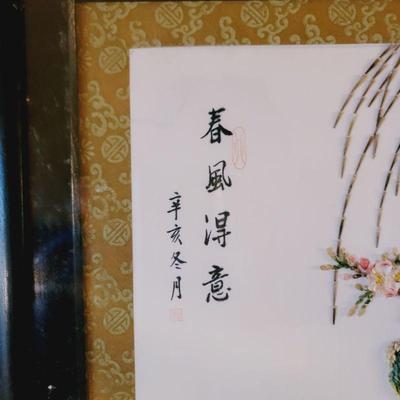 春風得意
辛亥冬月